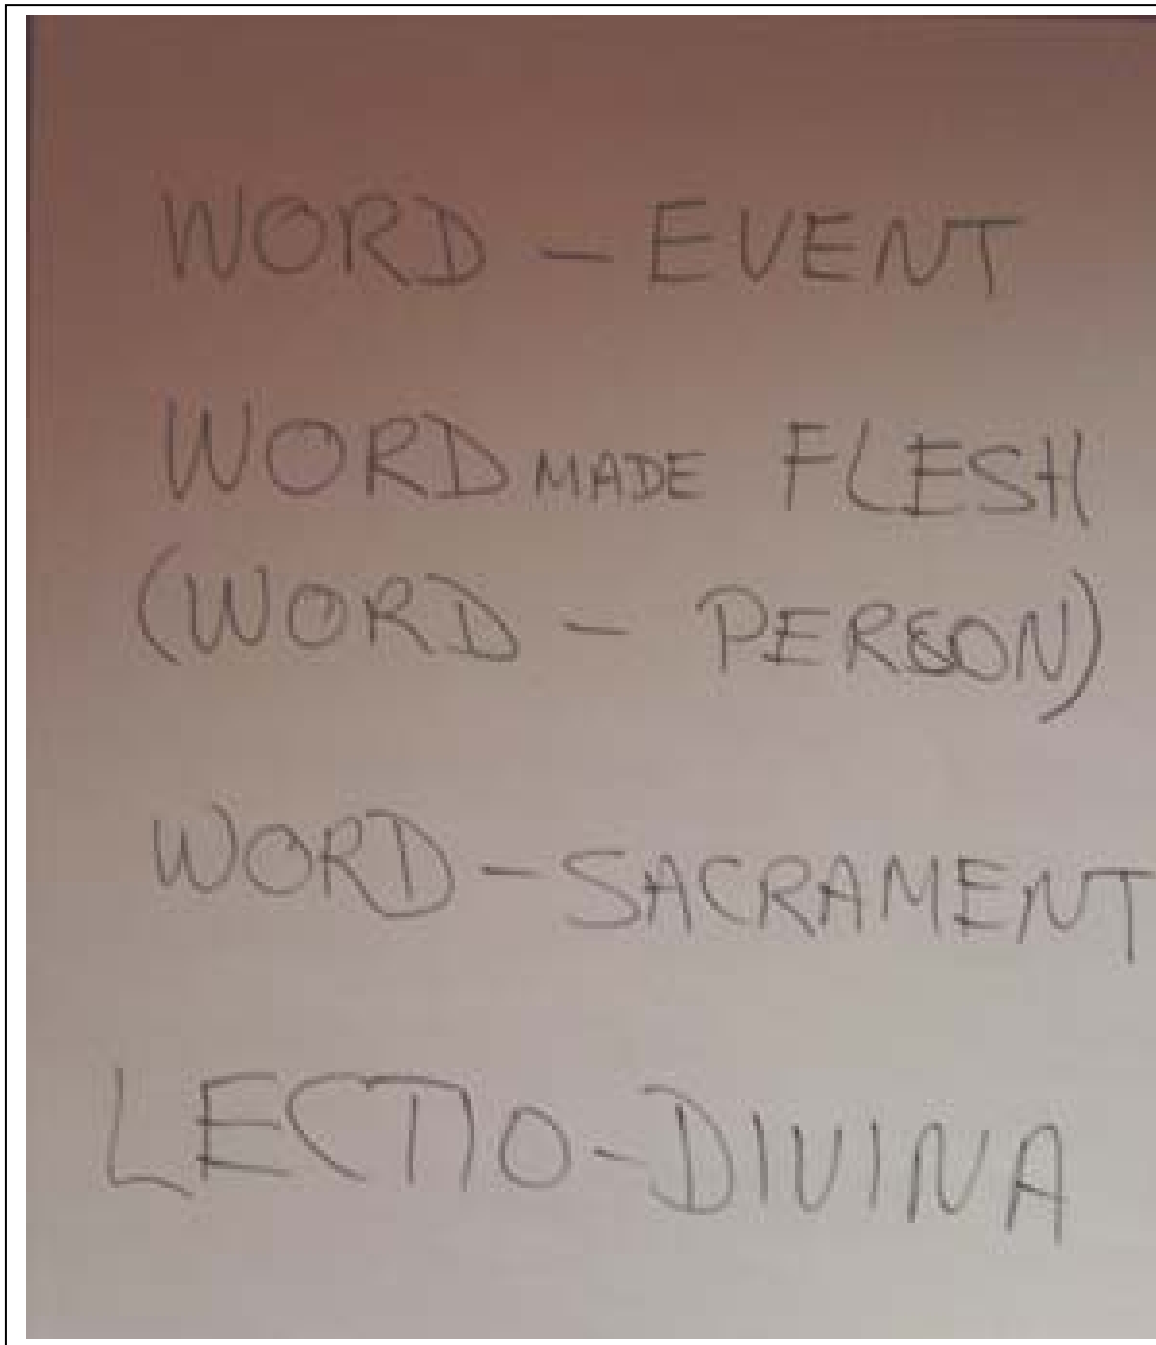 WORD - EVENT
WORD MADE FLESH
(WORD - PERSON)
WORD - SACRAMENT
LECTIO - DIVINA